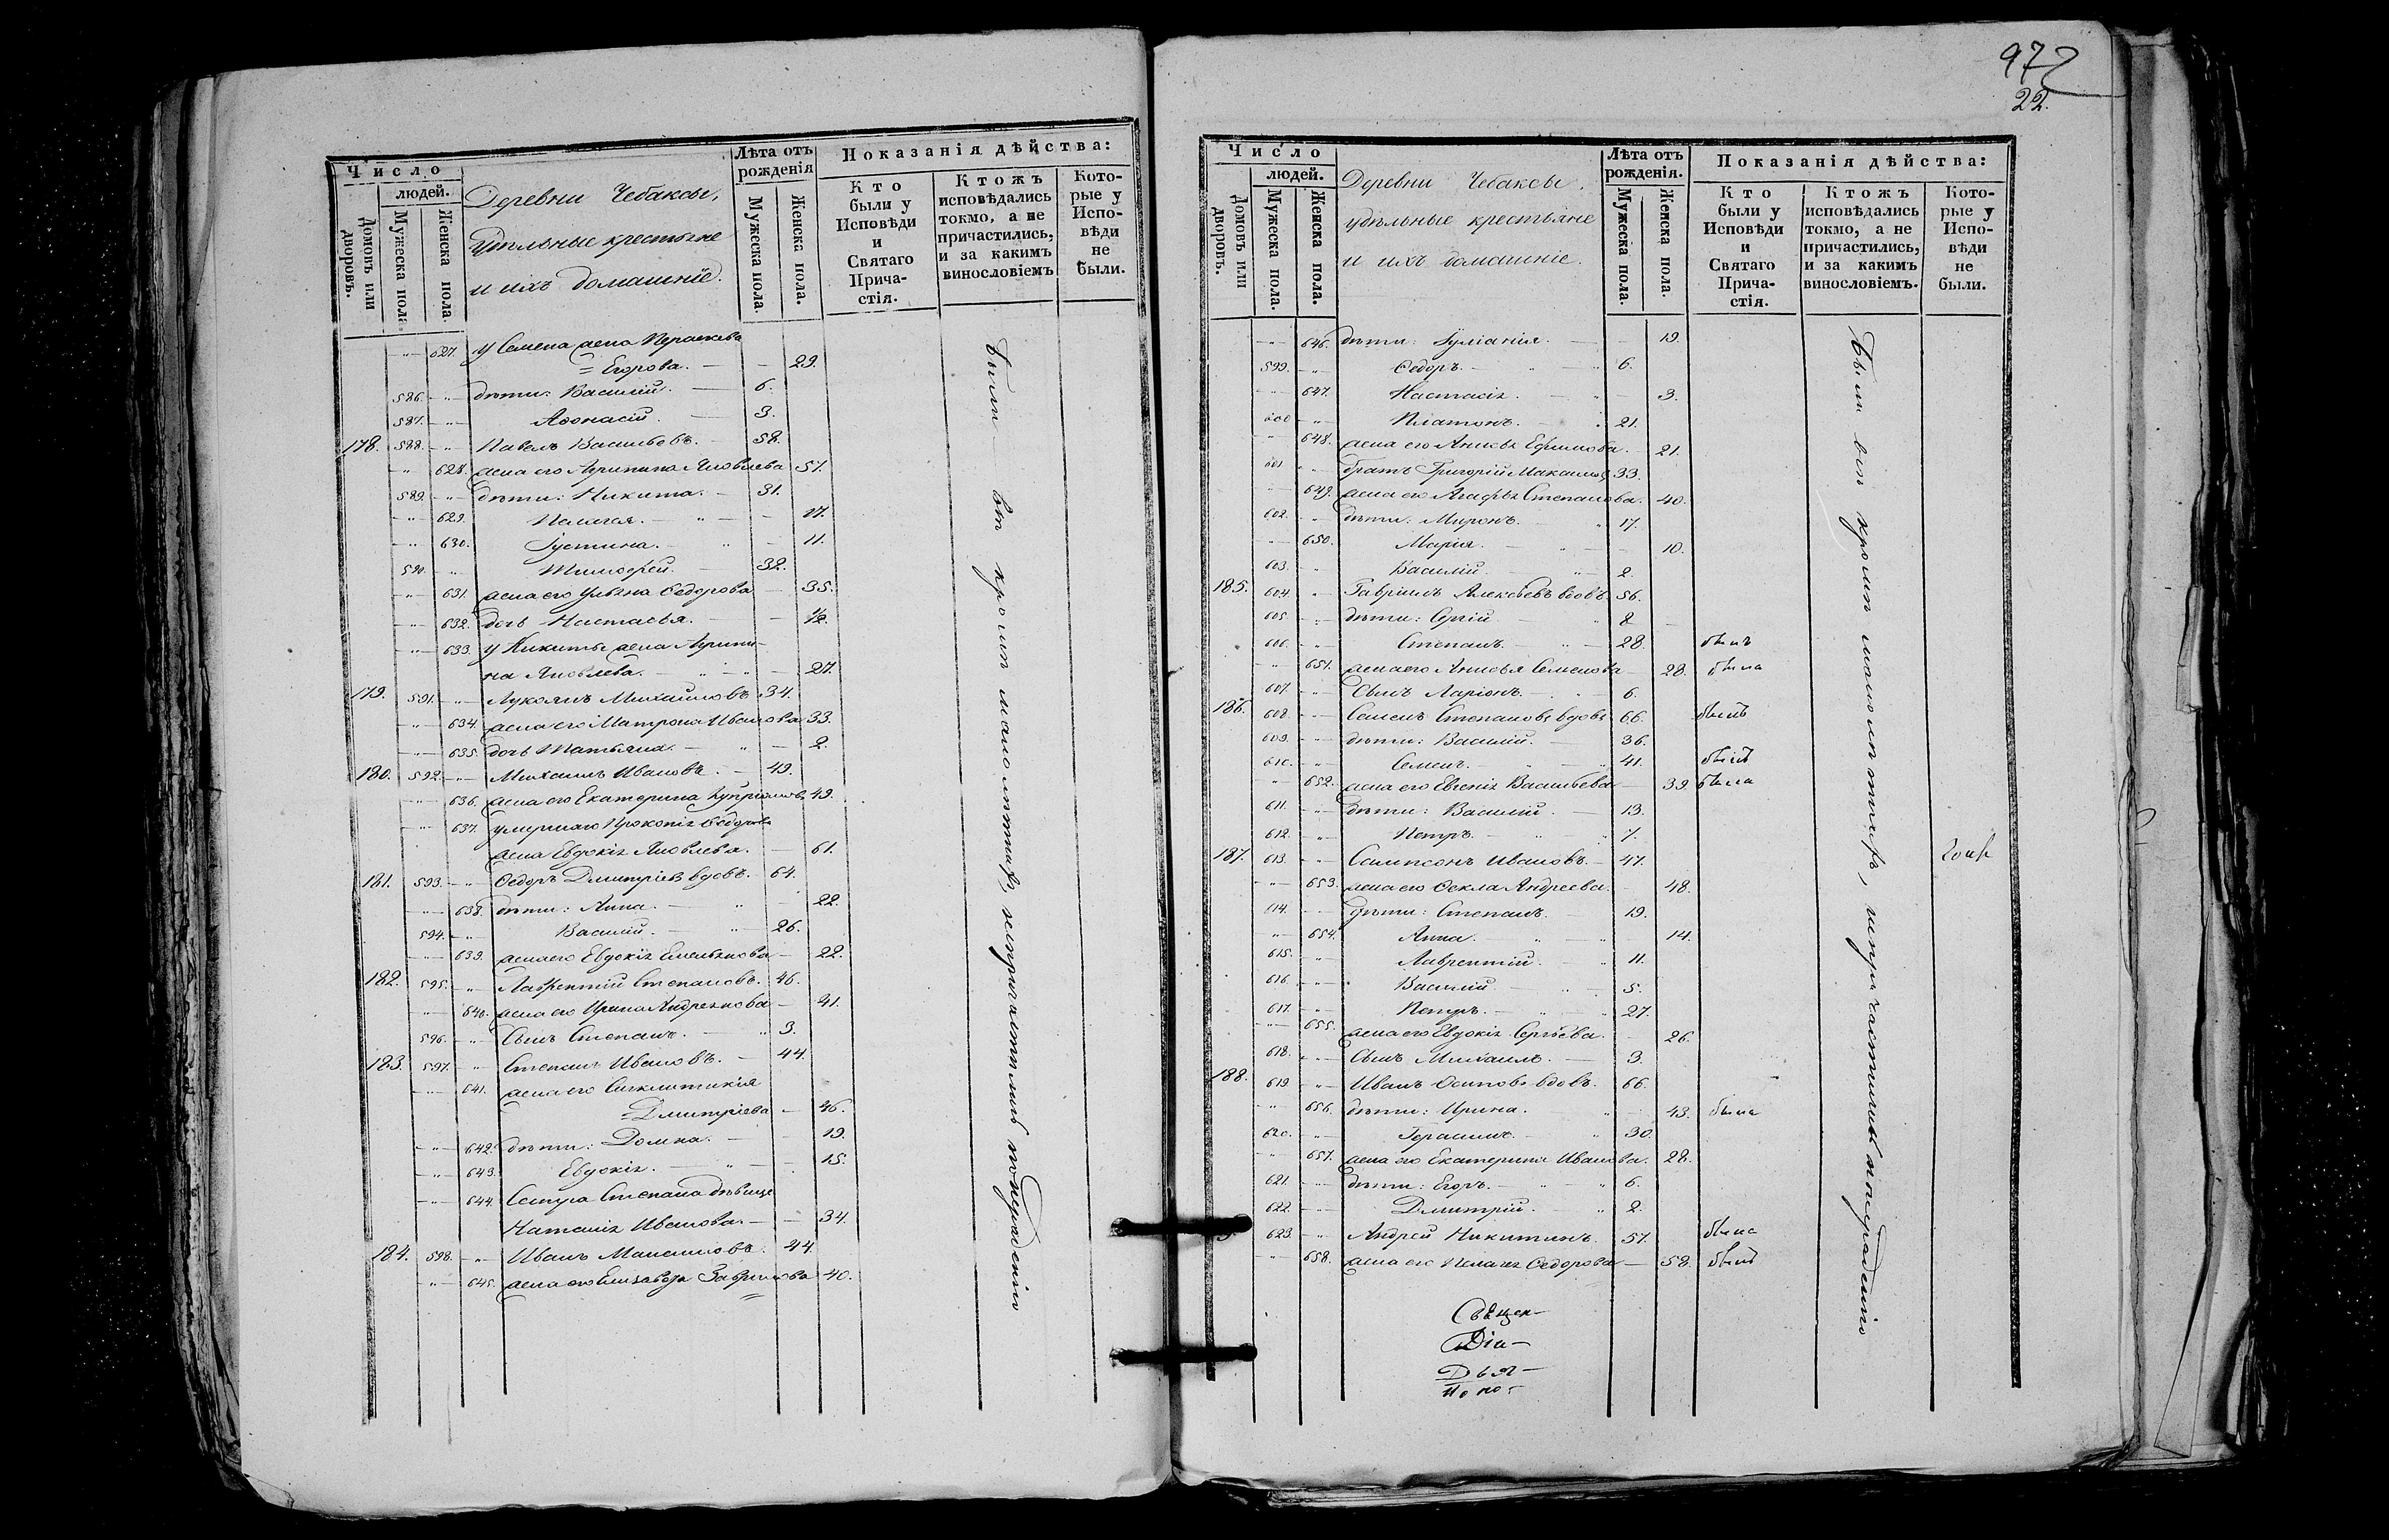 Число
людей.
Домовъ или дворовъ.
Мужеска пола
Женска пола.
Деревни Чебаксы,
Удѣльные крестьяне
и ихъ домашніе.
Лѣта отъ рожденія
Мужеска пола.
Женска пола.
Показанія дѣйства:
Кто были у Исповѣди и Святаго Причастія.
Ктожъ исповѣдались токмо, а не причастились, и за какимъ винословіемъ
Которые у Исповѣди не были.
" 627. У Семена жена Параскева
Егорова. — 29.
586. " дѣти: Василій. 6.
587. " Аѳонасій. 3.
178. 588. " Павелъ Васильевъ. 58.
" 628. жена его Агрипина Яковлева 57.
589. " дѣти: Никита. 31.
" 629. Пелагея. " — 17.
" 630. Іустина. " — 11.
590. " Тимофей. 32.
" 631. жена его Ульяна Ѳедорова — 35.
" 632. дочь Настасья. — 1/2.
" 633. У Никиты жена Агрипи-
на Яковлева. " — 27.
179. 591. " Лукоянъ Михайловъ. 34.
" 634. жена его Матрона Иванова 33.
" 635. дочь Татьяна. " — 2.
180. 592. " Михаилъ Ивановъ. 49.
" 636. жена его Екатерина Купріянов. 49.
" 637. умершаго Прокопія Ѳедорова
жена Евдокія Яковлева. — 61.
181. 593. " Ѳедоръ Дмитріевъ вдовъ. 64.
" 638. дѣти: Анна. " — 22.
594. " Василій. " 26.
" 639. жена его Евдокія Емельянова — 22.
182. 595. " Лаврентій Степановъ. 46.
" 640. жена его Ирина Андреянова — 41.
596. " Сынъ Степанъ. " 3.
183. 597. " Степанъ Ивановъ. 44.
" 641. жена его Синклитикія
Дмитріева — 46.
" 642. дѣти: Домна. — 19.
" 643. Евдокія. " — 15.
" 644. Сестра Степана дѣвица
Наталія Иванова. — 34.
184. 598. " Иванъ Максимовъ. 44.
" 645. жена его Елизавета Гаврилова 40.
были всѣ кромѣ малолѣтнихъ, непричастились по нерадѣнію
972
22.
Число
людей.
Домовъ или дворовъ.
Мужеска пола.
Женска пола.
Деревни Чебаксы,
удѣльные крестьяне
и ихъ домашніе.
Лѣта отъ рожденія.
Мужеска пола.
Женска пола.
Показанія дѣйства:
Кто были у Исповѣди и Святаго Причастія.
Ктожъ исповѣдались токмо, а не причастились, и за какимъ винословіемъ.
Которые у Исповѣди не были.
" 646. дѣти: Іуліанія. — 19.
599. " Ѳедоръ. " 6.
" 647. Настасія. " — 3.
600. " Платонъ. " 21.
" 648. жена его Анисья Ефимова. 21.
601. " братъ Григорій Максимов. 33.
" 649. жена его Агафья Степанова. 40.
602. " дѣти: Миронъ. " 17.
" 650. Марія. " — 10.
603. " Василій. " 2.
185. 604. " Гавріилъ Алексѣевъ вдовъ 56.
605. " дѣти: Сергій " 8
606. " Степанъ. " 28. былъ
" 651. жена его Анисья Семенова — 28. была
607. " Сынъ Ларіонъ. 6.
186. 608. " Семенъ Степановъ вдовъ 66. былъ
609. " дѣти: Василій. 36.
610. " Семенъ. " 41. былъ
" 652. жена его Евгенія Васильева — 39. была
611. " дѣти: Василій. 13.
612. " Петръ. " 7.
187. 613. " Сампсонъ Ивановъ. 47.
" 653. жена его Ѳекла Андреева. — 48.
614. " дѣти: Степанъ. 19.
" 654. Анна. " — 14.
615. " Лаврентій. " 11.
616. " Василій " 5.
617. " Петръ. " 27.
" 655. жена его Евдокія Сергѣева. — 26.
618. " Сынъ Михаилъ. 3.
188. 619. " Иванъ Осиповъ вдовъ. 66.
" 656. дѣти: Ирина. " — 43. была
620. " Герасимъ. " 30.
" 657. жена его Екатерина Иванова. 28.
621. " дѣти: Егоръ. " 6.
622. " Дмитрій. " 2.
623. " Андрей Никитинъ. 57.
" 658. жена его Пелагія Ѳедорова — 58. былъ
Были всѣ кромѣ малолѣтнихъ, непричастились по нерадѣнію
Священ-
Діа-
Дья-
Поно-